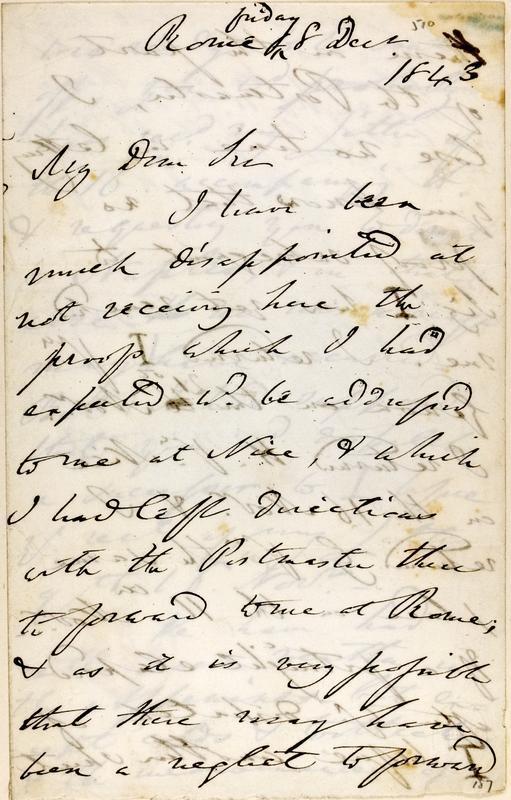 friday
Rome 8 Dec
1843
My Dear Sir
I have been
much disappointed at
not receivg here the
proofs which I had
expected wd. be addressed
to me at Nice, & which
I had left directions
with the Postmaster there
to forward to me at Rome;
& as it is very possible
that there may have
been a neglect to forward